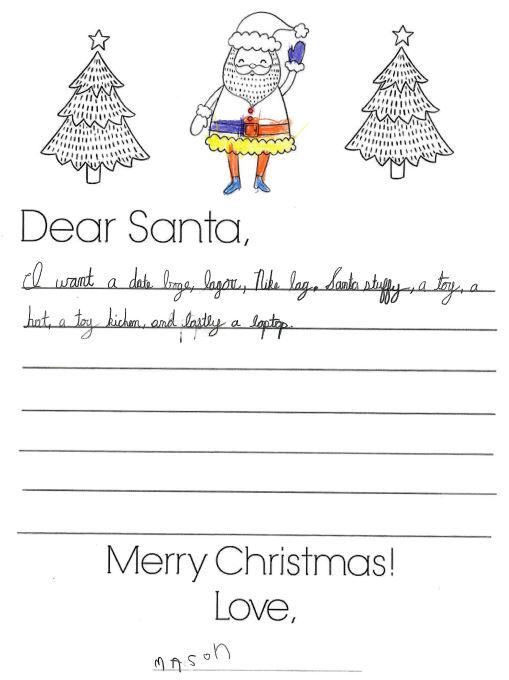 Dear Santa,
I want a date Nike bag, Santa stuffy, a toy, a
hot, a toy kichen, and lastly a laptop.
Merry Christmas!
Love,
MASON